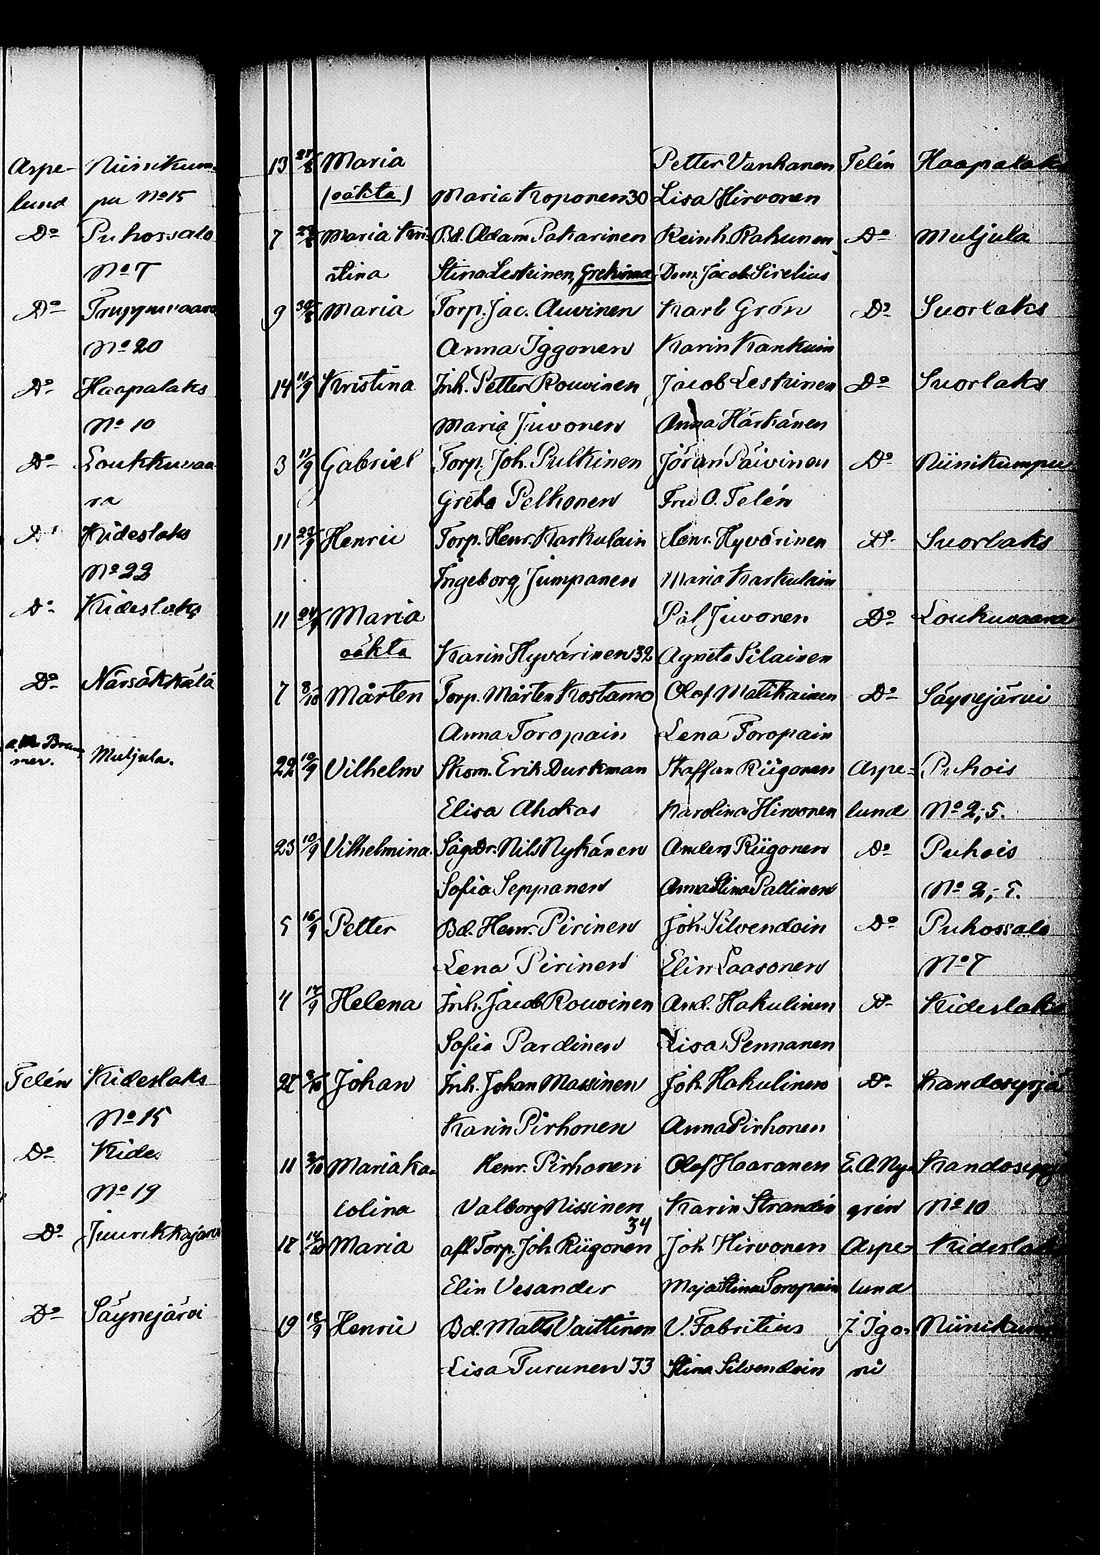 Aspe- Niinikum-
lund pu No 15
Do Puhossalo
No 7
Do Truppuvaara
No 20
Do Haapalaks
No 10
Do Loukkuvaa
ra
Do Kideslaks
No 22
Do Kideslaks
Do Närsäkkälä
Muljula.
Telén Kideslaks
No 15
Do Kide
No 19
Do Juurikkajärvi
Do Säynejärvi
13 27/8 Maria Petter Vanhanen Telén Haapalaks
(oäkta) Maria Koponen 30 Lisa Hirvonen
7 Maria Kri- Bd. Adam Pakarinen Reinh. Rahunen Do Muljula
stina Stina Leskinen, Dom. Jacob Sirelius
9 30/8 Maria Torp. Jac. Auvinen Karl Grön Do Suorlaks
Anna Iggonen Karin Kankuin
14 11/9 Kristina Inh. Petter Rouvinen Jacob Leskinen Do Suorlaks
Maria Juvonen Anna Härkänen
3 11/9 Gabriel Torp. Joh. Pulkinen Jöran Päivinen Do Niinikumpu
Greta Pelkonen Fru O. Telén
11 Henric Torp. Henr. Karkulain Henr. Hyvärinen Do Suorlaks
Ingeborg Jumpanen Maria Karkulain
11 24/9 Maria Pål Juvonen Do Loukuvaara
oäkta Karin Hyvärinen 32 Agneta Silainen
7 8/10 Mårten Torp. Mårten Kostamo Olof Matikainen Do Säynejärvi
Anna Toropain Lena Toropain
22 10/9 Vilhelm Skom. Erik Durkman Staffan Riigonen Aspe- Puhois
Elisa Ahokas Karolina Hirvonen lund No 2, 5.
23 10/9 Vilhelmina Sågdr. Nils Nykänen Anders Riigonen Do Puhois
Sofia Seppänen Anna Stina Pallinen No 2, 5.
5 16/9 Petter Bd. Henr. Pirinen Joh. Silvendoin Do Puhossalo
Lena Pirinen Elin Laasonen No 7
4 17/9 Helena Inh. Jacob Rouvinen And. Hakulinen Do Kideslaks
Sofia Pardinen Lisa Pennanen
Johan Inh. Johan Massinen Joh. Hakulinen Do Kandosyrjä
Karin Pirhonen Anna Pirhonen
11 Maria Ka- Henr. Pirhonen Olof Haaranen E. A. Ny- Kandosyrjä
rolina Valborg Nissinen Karin Strandin grén No 10
34
Maria afl. Torp. Joh. Riigonen Joh. Hirvonen Aspe- Kideslaks
Elin Vesander Maja Stina Toropain lund
19 18/9 Henric Bd. Matts Vaittinen V. Fabritius J. Igo- Niinikum
Lisa Turunen 33 Stina Silvendoin ni